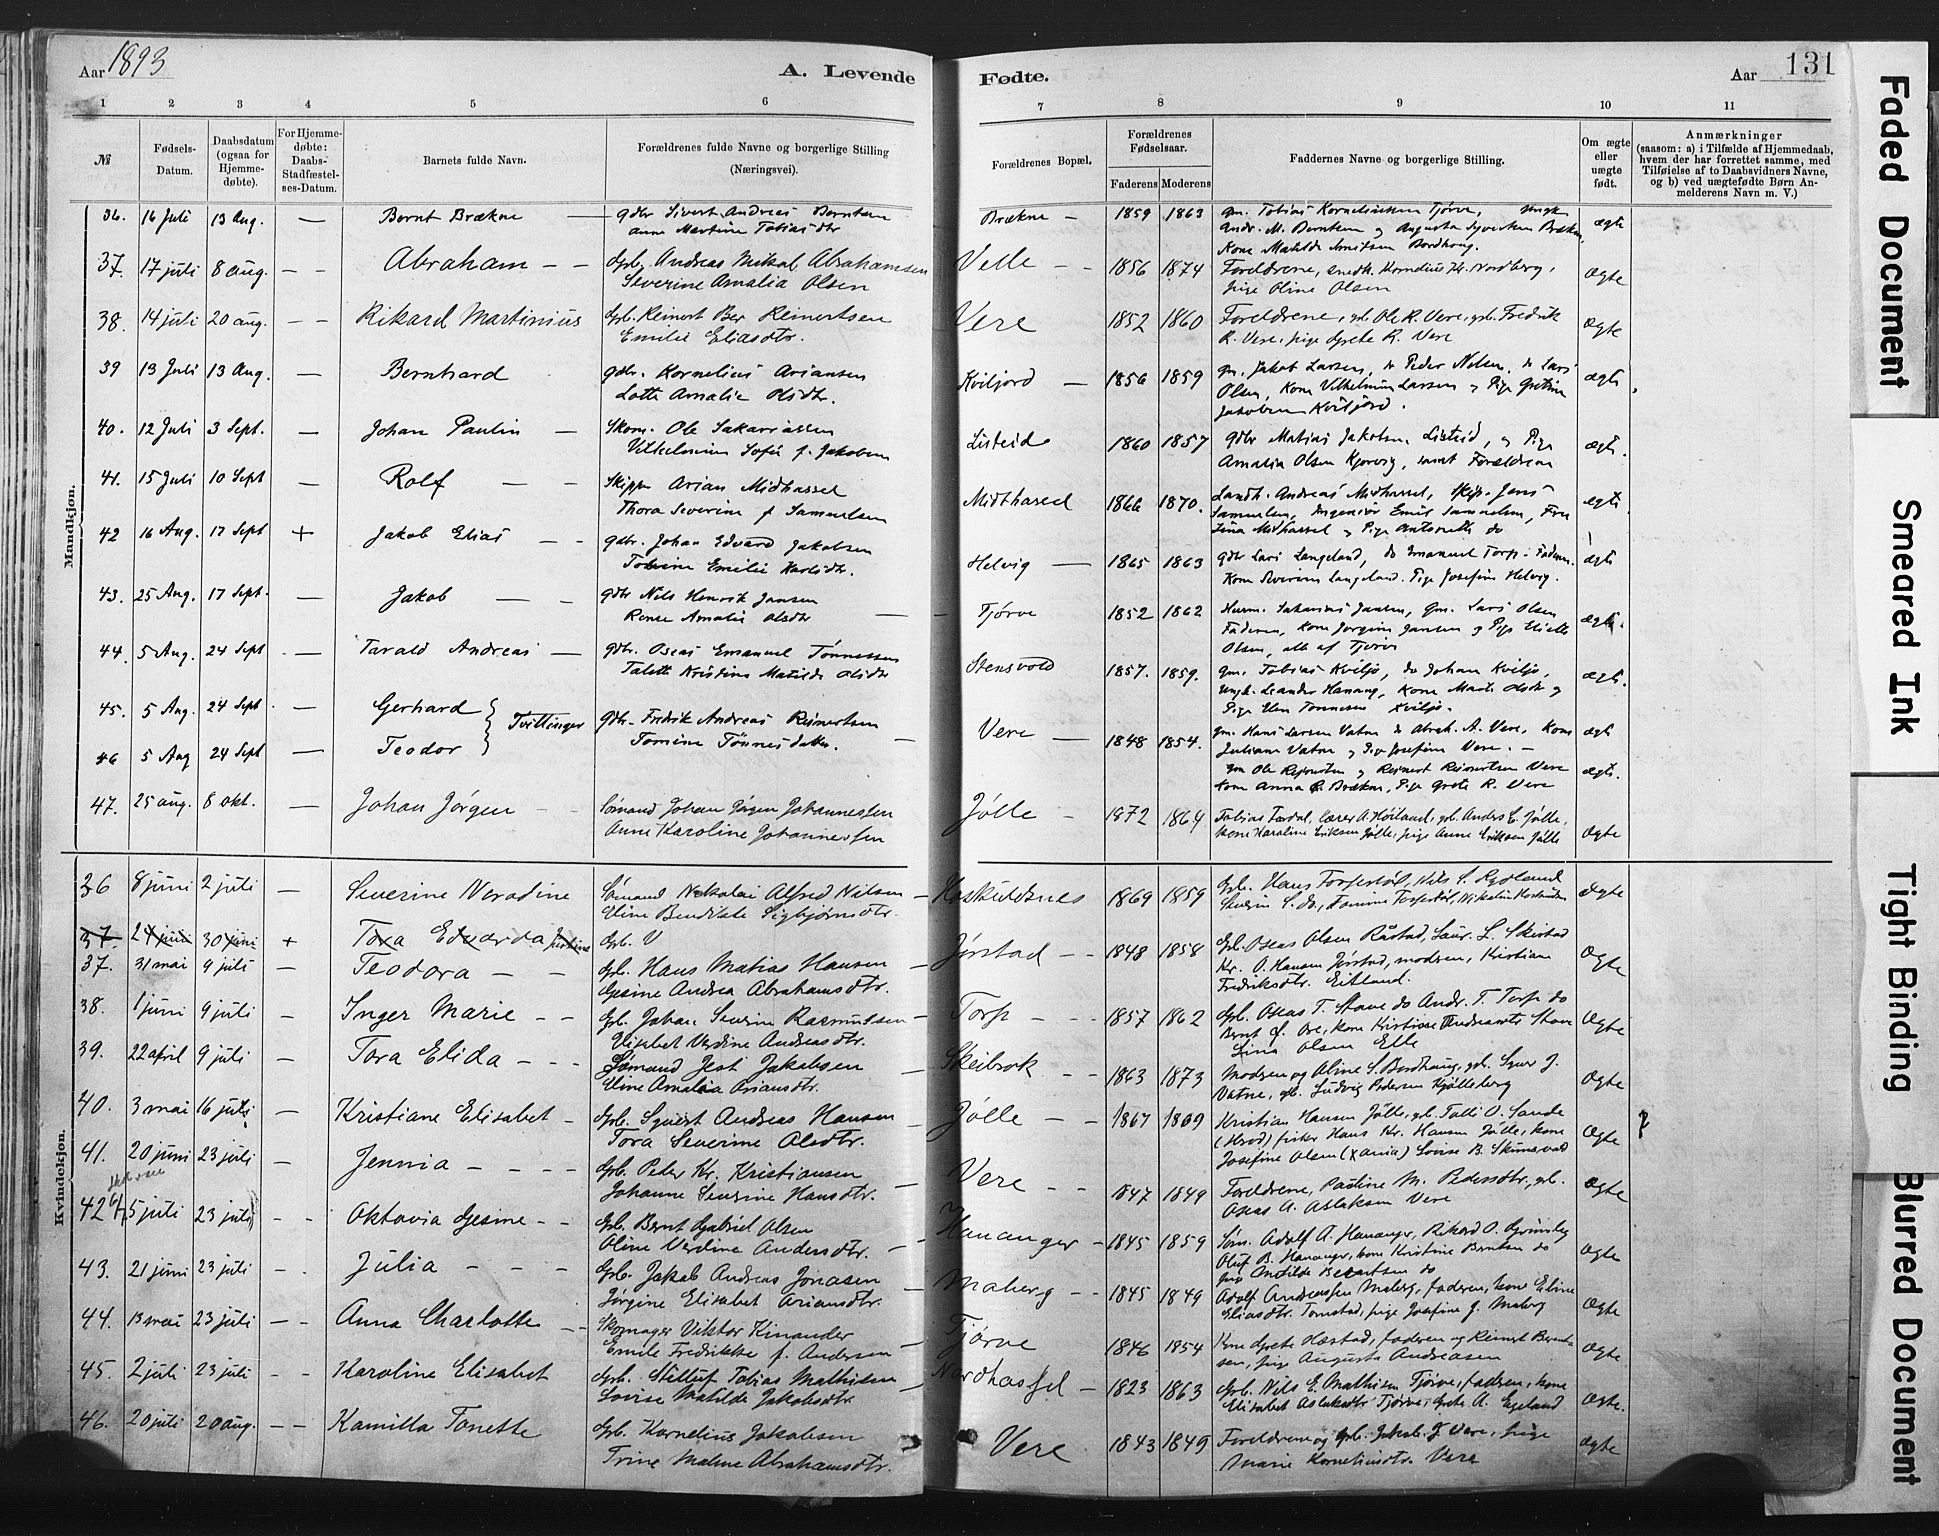 Aar 1893
A. Levende Fødte.
Aar 131
1 2 3 4 5 6 7 8 9 10 11
№
Fødsels-Datum.
Daabsdatum (ogsaa for Hjemme-døbte).
For Hjemme-døbte: Daabs-Stadfæstel-ses-Datum.
Barnets fulde Navn.
Forældrenes fulde Navne og borgerlige Stilling (Næringsvei).
Forældrenes Bopæl.
Forældrenes Fødselsaar.
Faderens Moderens
Faddernes Navne og borgerlige Stilling.
Om ægte eller uægte født.
Anmærkninger
(saasom: a) i Tilfælde af Hjemmedaab, hvem der har forrettet samme, med Tilføielse af to Daabsvidners Navne, og b) ved uægtefødte Børn An-melderens Navn m. V.)
Mandkjøn.
36. 16 Juli 13 Aug. — Bernt Brækne — gdbr Sivert Andreas Berntsen Brækne — 1859 1863 gm. Tobias Korneliussen Tjørve, ægte
Anne Martine Tobiasdtr Andr. M. Berntsen og Augusta Syvertsen Brækne,
37. 17 juli 8 aug. — — Abraham — — Gpb. Andreas Mikal Abrahamsen Velle — 1856 1874 Foreldrene, Nordberg, ægte
Severine Amalia Olsen pige Oline Olsen
38. 14 juli 20 aug. — — Rikard Martinius Gpb. Reinert Ber Reinertsen Vere 1852 1860 Foreldrene, gb. Ole R. Vere, gb. Fredrik ægte
Emilie Eliasdtr. R. Vere, pige Grete R. Vere
39 13 Juli 13 Aug. — Bernhard gdbr. Kornelius Ariansen Kviljord — 1856 1859 gm. Jakob Larsen, do Peder Nilsen, do Lars ægte
Lotte Amalie Olsdtr. Olsen, Kone Vilhelmine Larsen og Pige
Jakobsen Kviljord.
40. 12 Juli 3 Sept. — Johan Paulin — Skom. Ole Sakariassen Listeid 1860 1857 gdbr Matias Jakobsen Listeid, og Pige ægte.
Vilhelmine Sofie f. Jakobsen Amalia Olsen Kjørvig, samt Forældrene
41. 15 Juli 10 Sept — Rolf — — Skipper Arian Midthassel Midthassel 1866 1870. Landh. Andreas Midthassel, Skip. Jens ægte
Thora Severine f. Samuelsen Samuelsen, Ingeniør Emil Samuelsen, Fru
Midthassel og Pige do
42 16 Aug. 17 Sept + Jakob Elias — — gdbr. Johan Edvard Jakobsen Helvig — 1865 1863 gdbr Lars Langeland, do Emanuel Torp, Faderen. ægte
Tomine Emilie Karlsdtr. Kone Severine Langeland. Pige Josefine Helvig.
43. 25 Aug. 17 Sept. — Jakob — — gdbr Nils Henrik Jansen — Tjørve 1852 1862 Husm. Sakarias Jansen, gm. Lars Olsen ægte.
Amalie Olsdtr Faderen, Kone Jørgine Jansen og Pige
Olsen, alle af Tjørve
44. 5 Aug. 24 Sept — Tarald Andreas — gdbr. Oseas Emanuel Tønnessen Stensvold 1857. 1859. gm. Tobias Kviljo, do Johan Kviljo, ægte.
Talette Kristine Matilde Olsdtr ungk. Leander Hanang, Kone
Pige Tønnesen Kviljo.
45. 5 Aug. 24 Sept — Gerhard } Tvillinger gdbr. Fredrik Andreas Reinertsen — Vere — 1848 1854. gm. Hans Larsen Vatne do Abrah. A. Vere, Kone ægte
46 5 Aug 24 Sept — Teodor Tomine Tønnesdatter Juliane Vatne og Pige Josefine Vere. — ægte.
gm Ole Reinertsen og Reinert Reinertsen Vere
Kone Anna Brækne, Pige Grete R. Vere
47. 25 aug. 8 okt. — Johan Jørgen — Sømand Johan Jørgen Johannessen Jølle — 1972 1864 Tobias Førdal, lærer A. Høiland, gb. Anders E. Jølle, ægte
Anne Karoline Johannessen Kone Karoline Eriksen Jølle, pige Anne Eriksen Jølle
Kvindekjøn.
36 8 juni 2 juli — Severine Neradine Sømand Nikolai Alfred Nilsen — Haskuldsnes 1869 1859 ægte
Eline Bendikte Sigbjørnsdtr.
37. 24 juni 30 juni + Tora Edvarda Justine Gpb. V
37. 31 mai 9 juli — Teodora — — Gpb. Hans Matias Hansen — Jørstad — — 1848 1858 Gpb. Oseas Olsen Råstad, Laur. L. Skeistad ægte
Gesine Andrea Abrahamsdtr. Kr. O. Hansen Jørstad, modren, Kirstiane
Fredriksdtr. Eitland.
38. 1 juni 9 juli — Inger Marie — — Gpb. Johan Severin Rasmussen — Torp — — 1857 1862 Gpb. Oseas T. Stave do Andr. T. Torp do ægte
Elisabet Verdine Andreasdtr. Bernt Ø. Ore, kone Kristine Stave
Lina Olsen Elle
39. 22 april 9 juli — Tora Elida — — Sømand Jest Jakobsen — Skeibrok — — 1863 1873 Modren og Aline S. Bordhaug, gb. J. ægte
Eline Amalia Ariansdtr. Vatne, gb. Ludvig Pedersen Kjøllesberg
40. 3 mai 16 juli — Kristiane Elisabet — Gpb. Syvert Andreas Hansen Jølle — — 1867 1869 Kristian Hansen Jølle, gb. Talli O. Sande ægte
Tora Severine Olsdtr. fisker Hans Kr. Hansen Jølle, kone
Josefine Olsen Lovise B. Skumsvad
41. 20 juni 23 juli — Jennia — — — Gpb. Peder Kr. Kristiansen Vere — — 1847 1849 Foreldrene, Pauline M. Pedersdtr, gb. ægte
Johanne Severine Hansdtr. Oseas A. Aslaksen Vere
42 5 juli 23 juli — — Oktavia Gesine — — Gpb. Bernt Gabriel Olsen — Hananger — 1845 1859 Søm. Adolf A. Hananger, Rikard O. Grimsby ægte
Oline Verdine Andersdtr. Oluf B. Hananger, kone Kristine Berntsen do
pige Matilde Berntsen do
43. 21 juni 23 juli — Julia — — — Gpb. Jakob Andreas Jonasen Maberg — — 1845 1849 Adolf Andreassen Maberg, faderen, kone Eline ægte
Jørgine Elisabet Ariansdtr. Eliasdtr. Tomstad, pige Josefine J. Maberg
44. 13 mai 23 juli — — Anna Charlotte — Skomager Viktor Kinander — Tjørve 1846 1854 Kone Grete Hæstad, faderen og Reinert Bernt- ægte
Emile Fredrikke f. Andersen sen, pige Augusta Andreasen
45. 2 juli 23 juli — — Karoline Elisabet Gpb. Tobias Mathisen — Nordhassel — 1823 1863 Gpb. Nils E. Mathisen Tjørve, fadren, kone ægte.
Lovise Matilde Jakobsdtr. Elisabet Aslaksdtr Tjørve, Grete A. Egeland
46. 20 juli 20 aug. — — Kamilla Tonette Gpb. Kornelius Jakobsen Vere 1843 1849 Foreldrene og gb. Jakob J. Vere, pige ægte
Trine Malene Abrahamsdtr. Marie Korneliusdtr. Vere
Faded Document
Smeared Ink
Tight Binding
Blurred Document